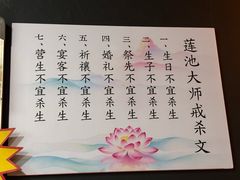 莲池大师戒杀文
一、生日不宜杀生
二、生子不宜杀生
三、祭先不宜杀生
四、婚礼不宜杀生
五、宴客不宜杀生
六、祈禳不宜杀生
七、营生不宜杀生